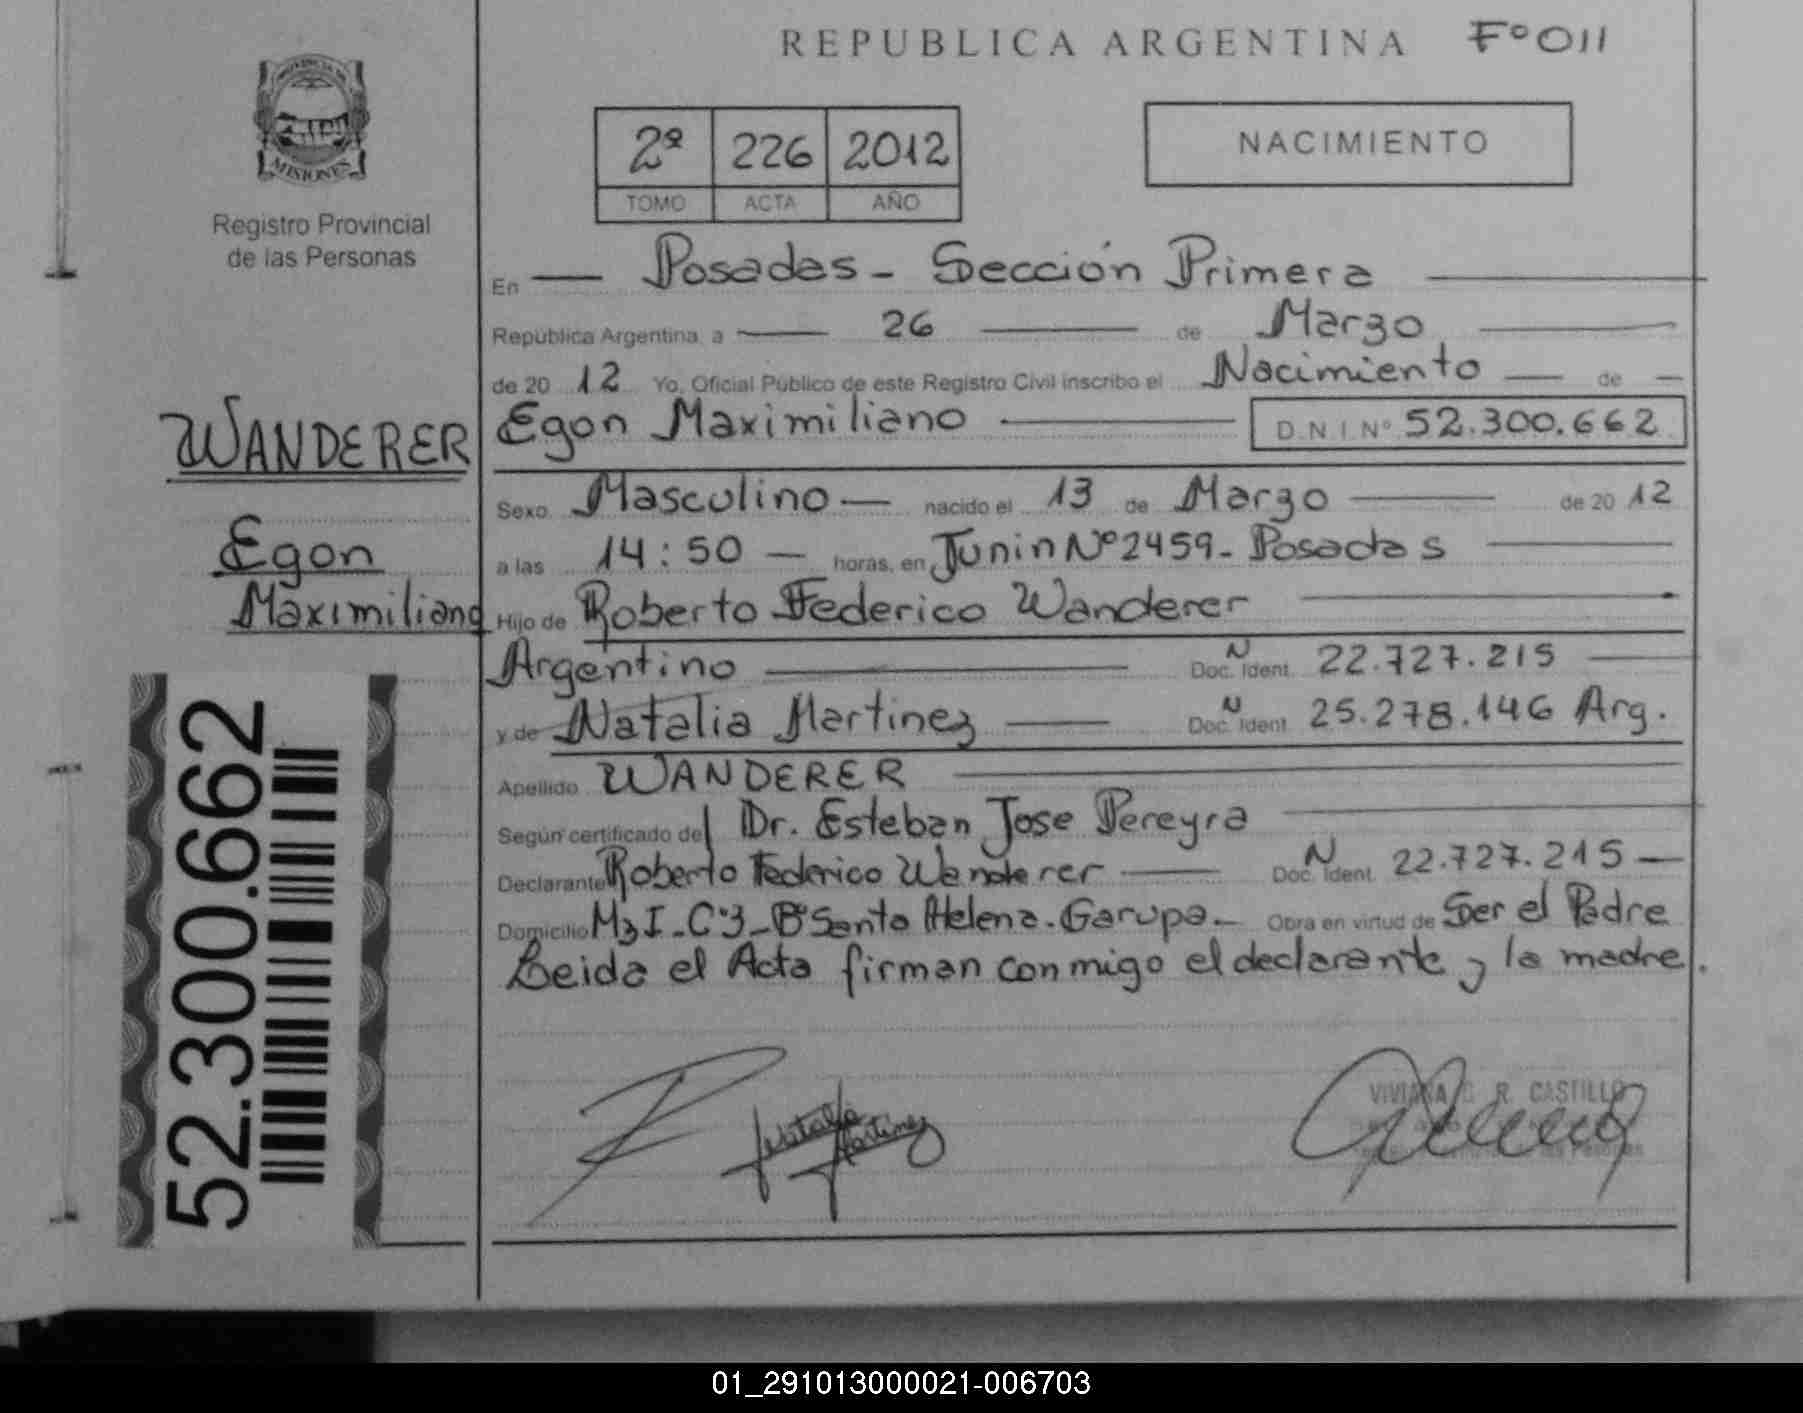 REPUBLICA ARGENTINA Fº011
PROVINCIA DE
MISIONES
Registro Provincial
de las Personas
2º 226 2012
TOMO ACTA AÑO
NACIMIENTO
En Posadas - Sección Primera
República Argentina, a 26 de Marzo
de 20 12 Yo, Oficial Público de este Registro Civil inscribo el Nacimiento de
Egon Maximiliano D.N.I. Nº 52.300.662
WANDERER
Egon
Maximiliano
Sexo Masculino nacido el 13 de Marzo de 20 12
a las 14:50 horas, en Junin Nº 2459 - Posadas
Hijo de Roberto Federico Wanderer
Argentino N Doc. Ident. 22.727.215
y de Natalia Martinez N Doc. Ident. 25.278.146 Arg.
Apellido WANDERER
Según certificado del Dr. Esteban Jose Pereyra
Declarante Roberto Federico Wanderer N Doc. Ident. 22.727.215
Domicilio Mz I - Cº3 - Bº Santa Helena - Garupa. Obra en virtud de Ser el Padre
Leida el Acta firman conmigo el declarante y la madre.
52.300.662
Natalia
Martinez
VIVIANA R. CASTILLO
01_291013000021-006703